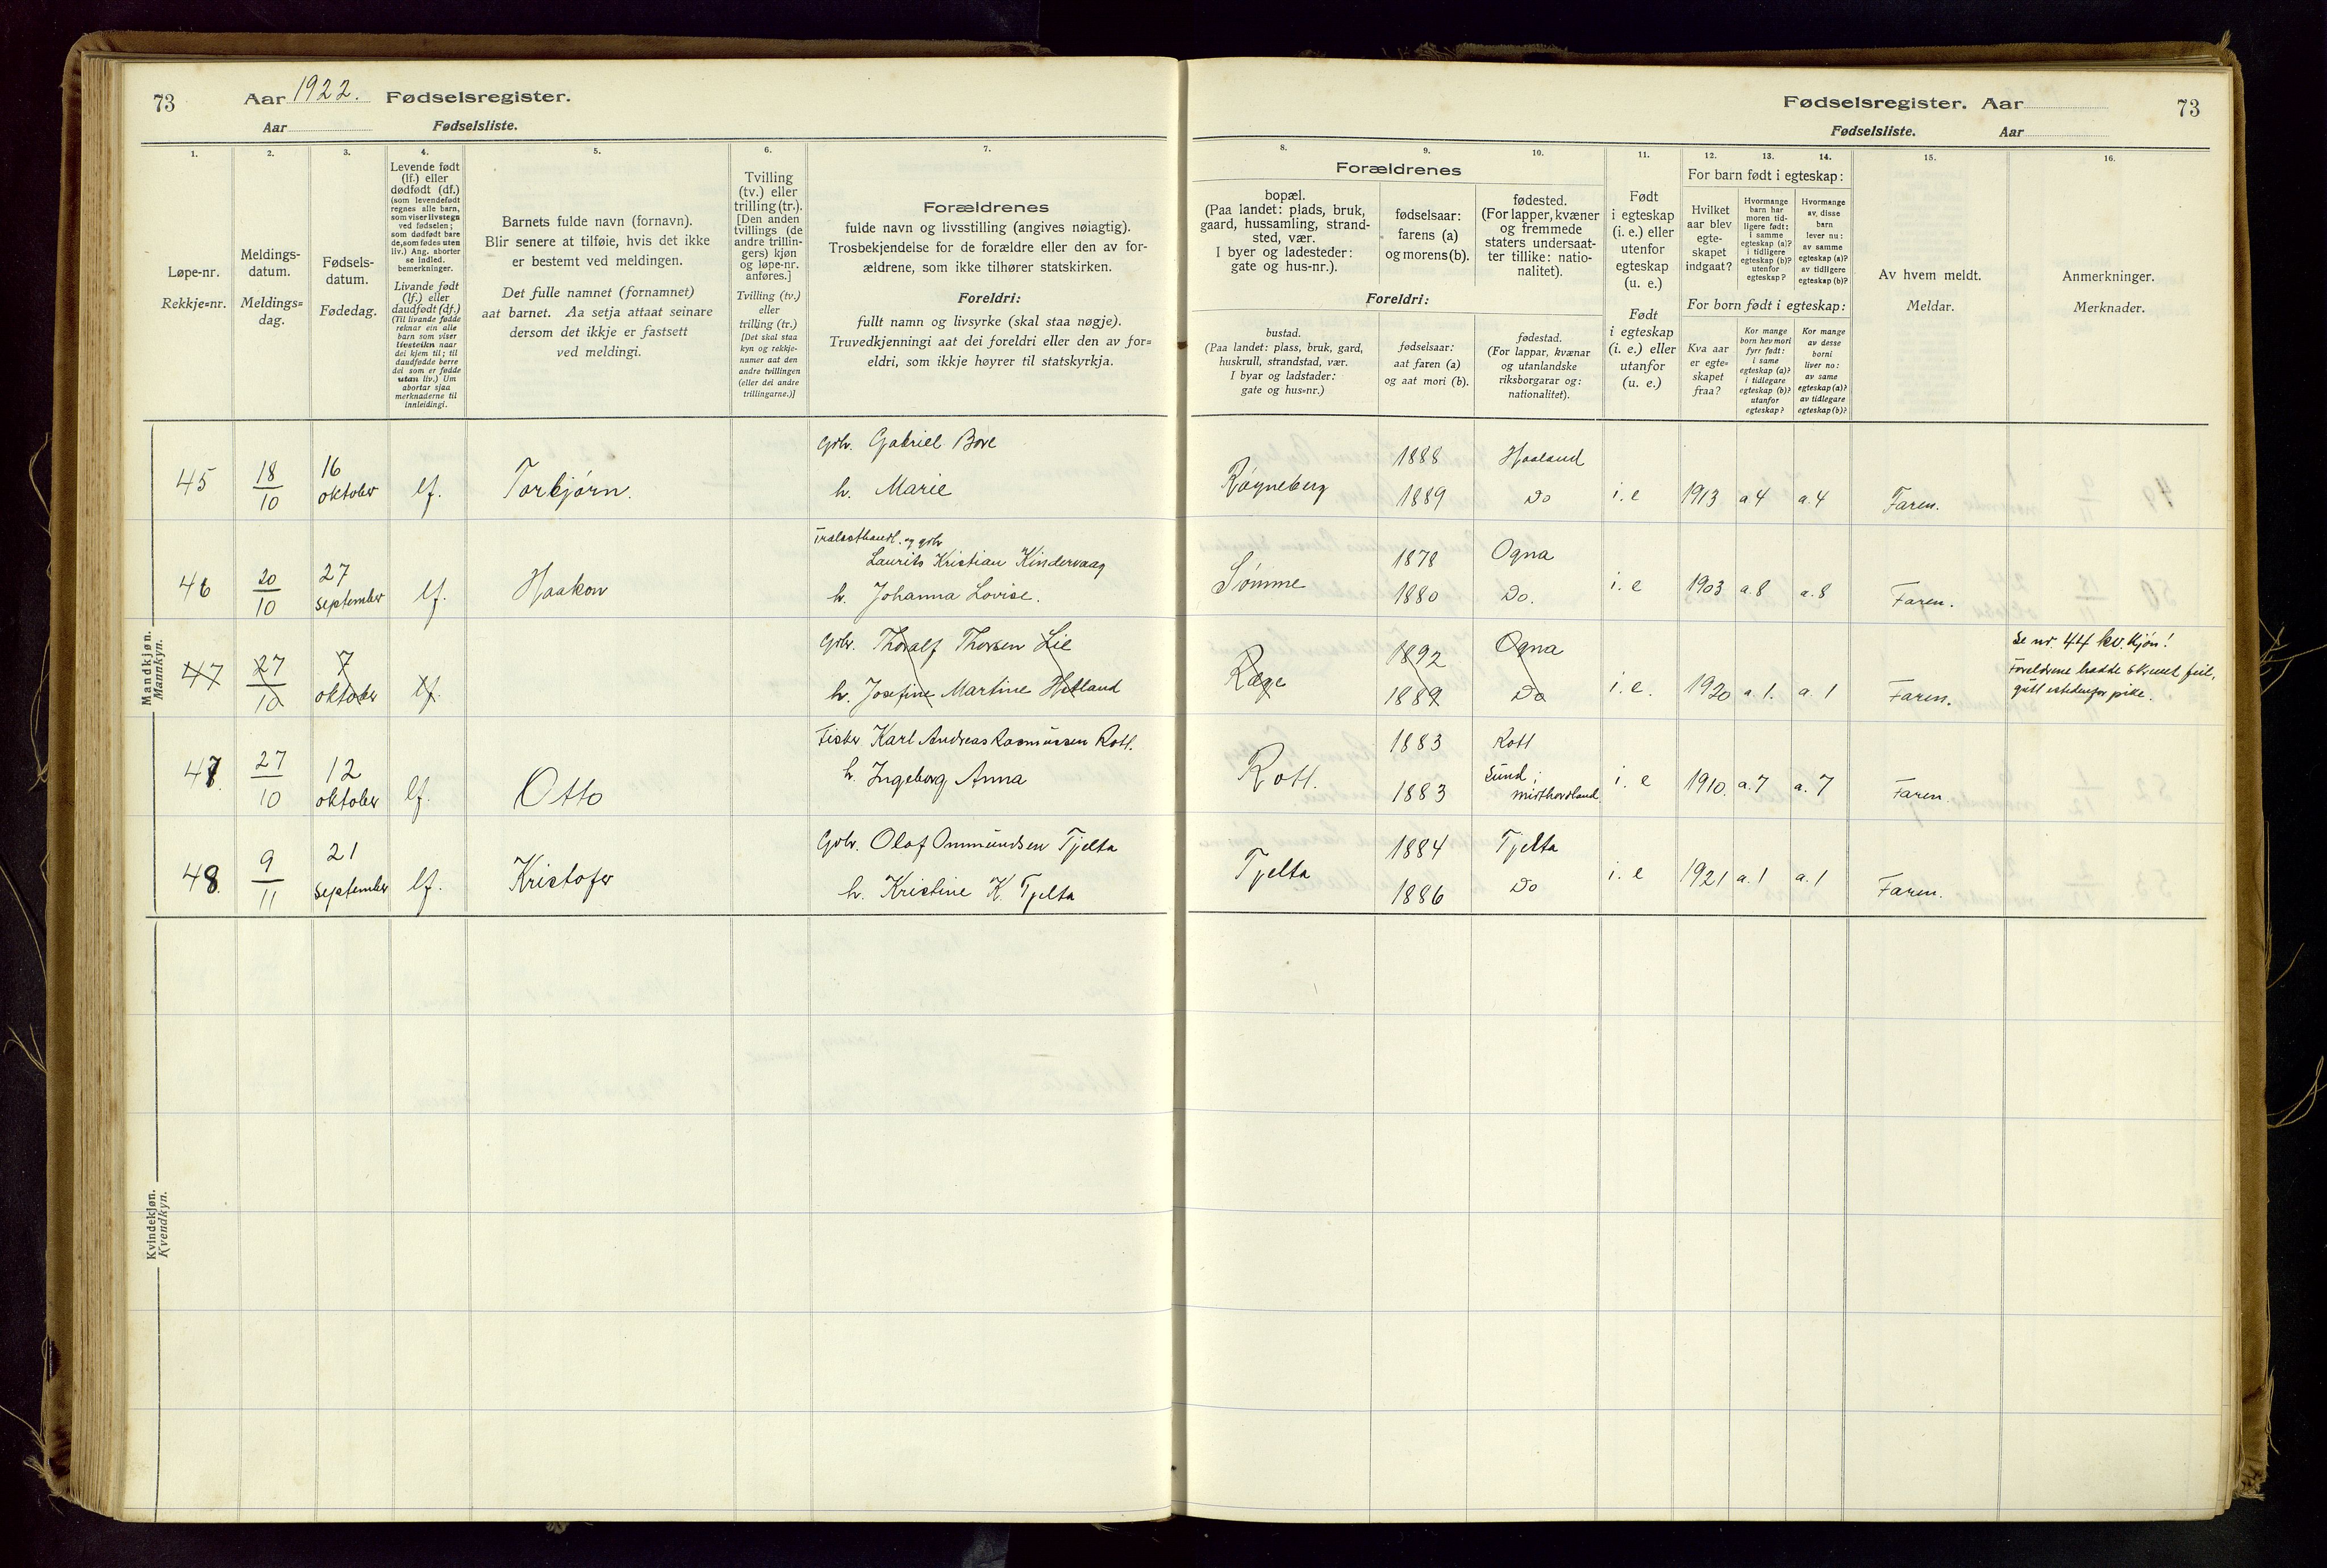 73 Aar 1922. Fødselsregister.
Aar Fødselsliste.
1. 2. 3. 4. 5. 6. 7.
Løpe-nr.
Rekkje=nr.
Meldings-
datum.
Meldings=
dag.
Fødsels-
datum.
Fødedag.
Levende født
(lf.) eller
dødfødt (df.)
(som levendefødt
regnes alle barn,
som viser livstegn
ved fødselen;
som dødfødt bare
de, som fødes uten
liv.) Ang. aborter
se indled.
bemerkninger.
Livande født
(lf.) eller
daudfødt (df.)
(Til livande fødde
reknar ein alle
barn som viser
livsteikn naar
dei kjem til; til
daudfødde berre
dei som er fødde
utan liv.) Um
abortar sjaa
merknaderne til
innleidingi.
Barnets fulde navn (fornavn).
Blir senere at tilføie, hvis det ikke
er bestemt ved meldingen.
Det fulle namnet (fornamnet)
aat barnet. Aa setja attaat seinare
dersom det ikkje er fastsett
ved meldingi.
Tvilling
(tv.) eller
trilling (tr.).
[Den anden
tvillings (de
andre trillin-
gers) kjøn
og løpe-nr.
anføres.]
Tvilling (tv.)
eller
trilling (tr.)
[Det skal staa
kyn og rekkje-
numer aat den
andre tvillingen
(eller dei andre
trillingarne.)]
Forældrenes
fulde navn og livsstilling (angives nøiagtig).
Trosbekjendelse for de forældre eller den av for-
ældrene, som ikke tilhører statskirken.
Foreldri:
fullt namn og livsyrke (skal staa nøgje).
Truvedkjenningi aat dei foreldri eller den av for=
eldri, som ikkje høyrer til statskyrkja.
Mandkjøn.
Mannkyn.
45 18/10 16 oktober lf. Torbjørn. Grbr. Gabriel Bore
h. Marie
46 20/10 27 september lf. Haakon Trælasthandl. og grbr
Laurits Kristian Kindervaag
h. Johanna Lovise.
47 27/10 7 oktober lf. Grbr. Thoralf Thorsen Lie
h. Josefine Martine Hetland
47 27/10 12 oktober lf. Otto Fisker Karl Andreas Rasmussen Rott.
h. Ingeborg Anna
48. 9/11 21 september lf. Kristofer Grbr. Olaf Ommundsen Tjelta
h. Kristine K. Tjelta
Kvindekjøn.
Kvendkyn.
Fødselsregister. Aar 73
Fødselsliste. Aar
8. 9. 10. 11. 12. 13. 14. 15. 16.
Forældrenes
bopæl.
(Paa landet: plads, bruk,
gaard, hussamling, strand-
sted, vær.
I byer og ladesteder:
gate og hus-nr.).
fødselsaar:
farens (a)
og morens (b).
fødested.
(For lapper, kvæner
og fremmede
staters undersaat-
ter tillike: natio-
nalitet).
Foreldri:
bustad.
(Paa landet: plass, bruk, gard,
huskrull, strandstad, vær.
I byar og ladstader:
gate og hus=nr.)
fødselsaar:
aat faren (a)
og aat mori (b).
fødestad.
(For lappar, kvænar
og utanlandske
riksborgarar og:
nationalitet).
Født
i egteskap
(i. e.) eller
utenfor
egteskap
(u. e.)
Født
i egteskap
(i. e.) eller
utanfor
(u. e.)
For barn født i egteskap:
Hvilket
aar blev
egte-
skapet
indgaat?
Hvormange
barn har
moren tid-
ligere født:
i samme
egteskap (a)?
i tidligere
egteskap (b)?
utenfor
egteskap?
Hvormange
av disse
barn
lever nu:
av samme
egteskap (a)?
av tidligere
egteskap (b)?
For born født i egteskap:
Kva aar
er egte-
skapet
fraa?
Kor mange
born hev mori
fyrr født:
i same
egteskap (a)?
i tidlegare
egteskap (b)?
utanfor
egteskap?
Kor mange
av desse
borni
liver no:
av same
egteskap (a)?
av tidlegare
egteskap (b)?
Av hvem meldt.
Meldar.
Anmerkninger.
Merknader.
Røyneberg 1888 Haaland
1889 Do i. e 1913 a 4 a. 4 Faren.
Sømme 1878 Ogna
1880 Do. i. e 1903 a. 8 a. 8 Faren.
Ræge 1892 Ogna
1889 Do i. e. 1920 a. 1. a. 1 Faren. Se nr. 44 kv. kjøn!
Foreldrene hadde skrevet feil,
gutt istedenfor pike.
Rott. 1883 Rott
1883 Sund, Midthordland i. e 1910. a. 7 a. 7 Faren.
Tjelta 1884 Tjelta
1886 Do i. e 1921 a. 1 a. 1 Faren.